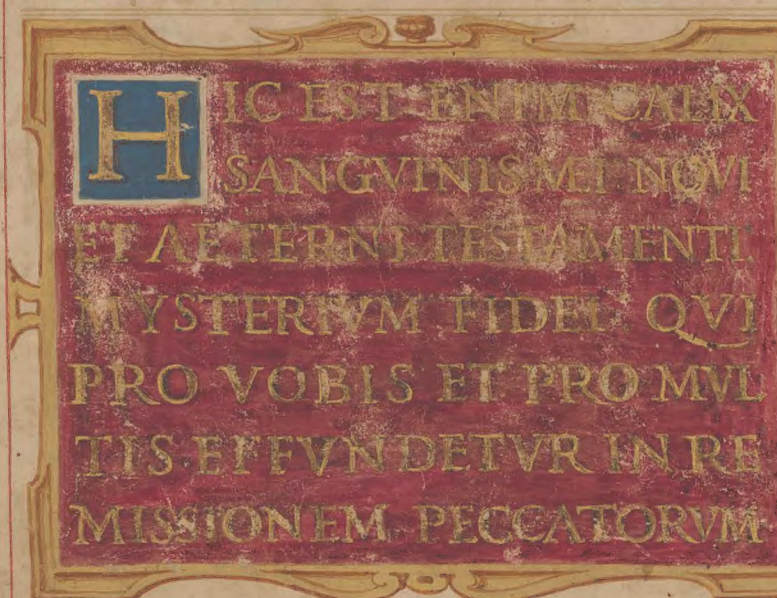 HIC EST ENIM CALIX
SANGVINIS M.I NOVI
ET AETERNI TESTAMENTI.
MYSTERIVM FIDEI. QVI
PRO VOBIS ET PRO MVL
TIS EFFVNDETVR IN RE
MISSIONEM PECCATORVM